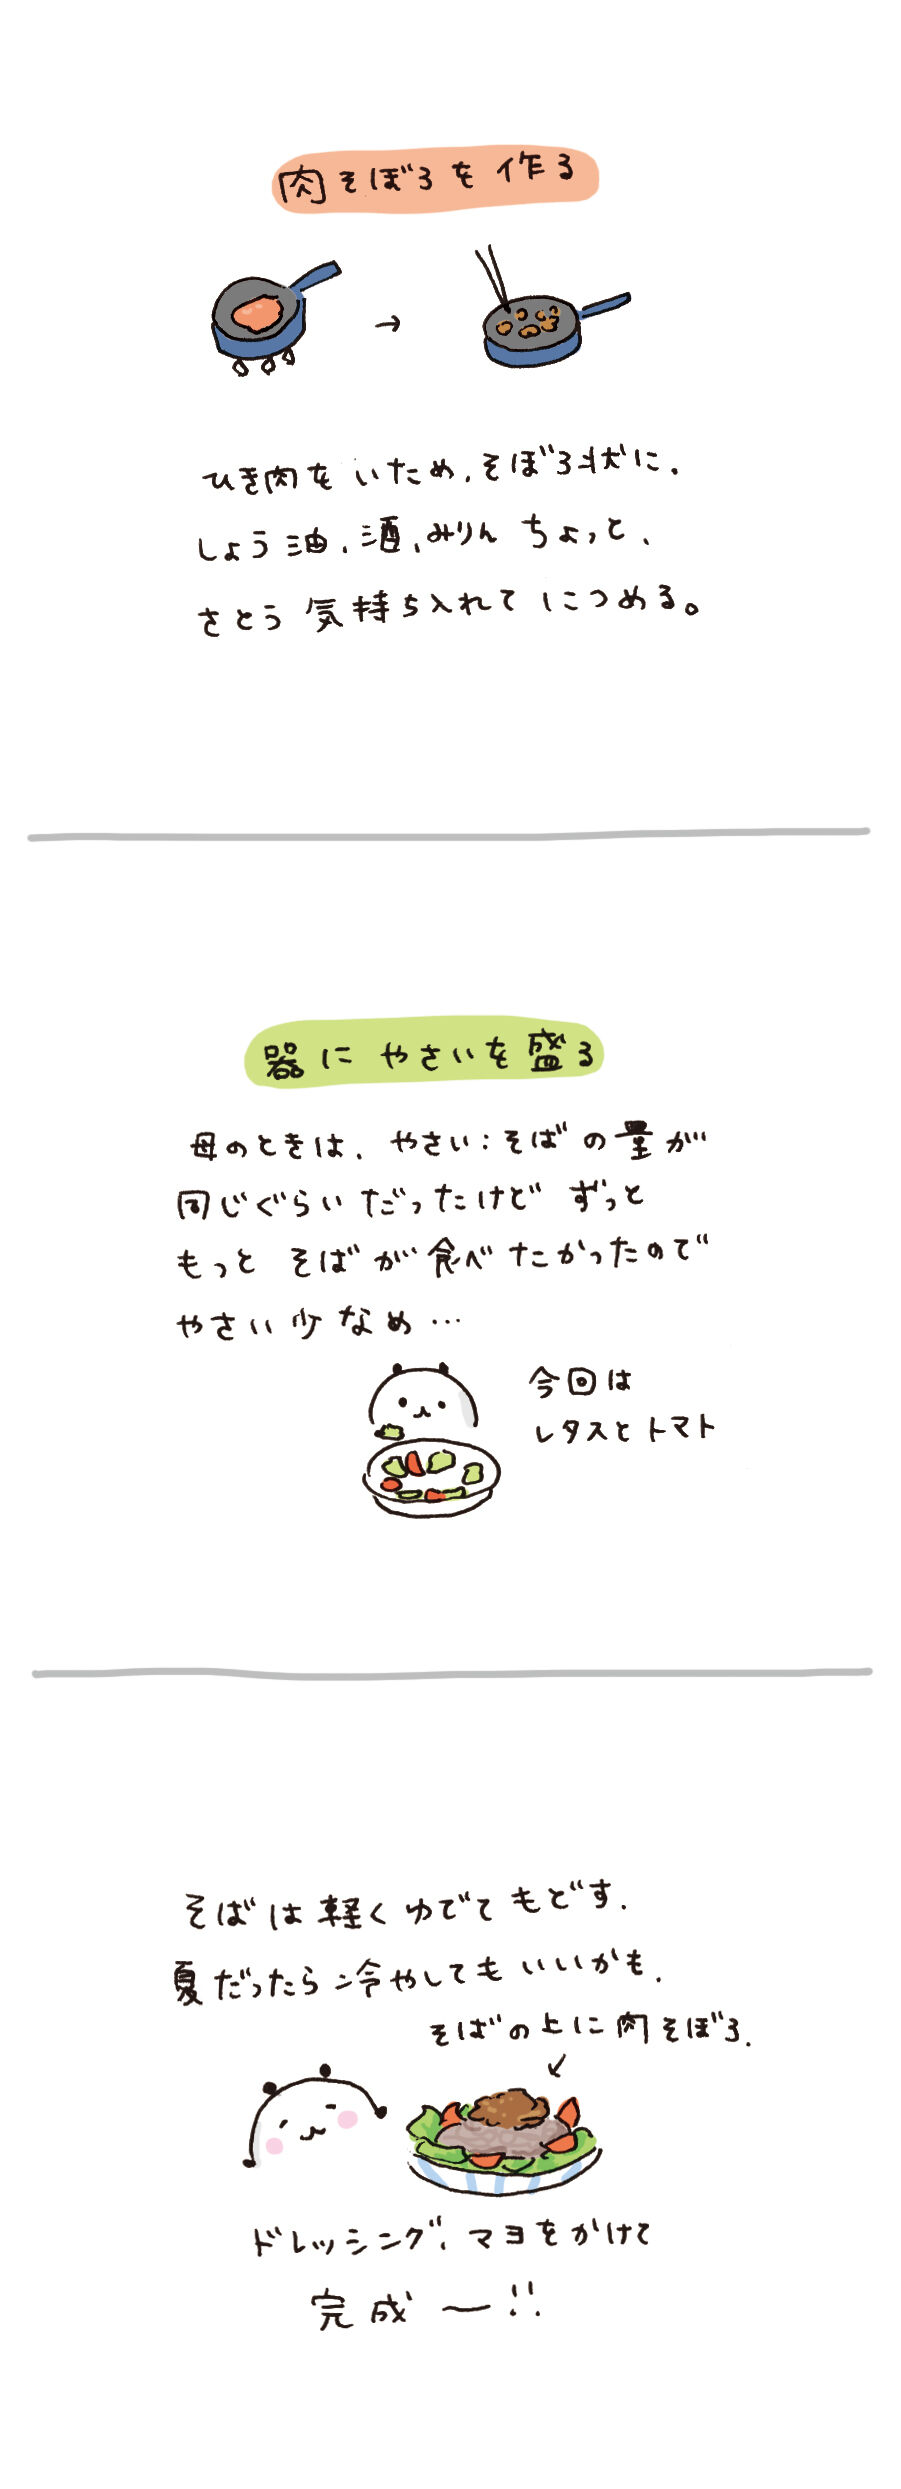 肉そぼろを作る
→
ひき肉をいため、そぼろ状に。
しょう油、酒、みりん ちょっと、
さとう 気持ち入れて につめる。
器に やさいを盛る
母のときは、やさい:そばの量が
同じぐらいだったけど ずっと
もっと そばが食べたかったので
やさい少なめ…
今回は
レタスとトマト
そばは軽くゆでてもどす。
夏だったら冷やしてもいいかも。
そばの上に肉そぼろ。
ドレッシング、マヨをかけて
完成〜!!